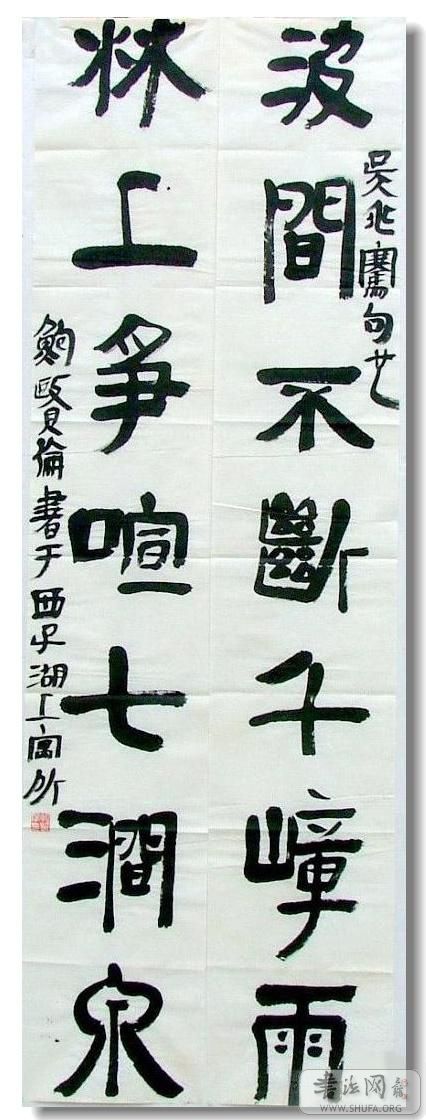 吳兆騫句也
波間不斷千嶂雨
林上爭喧七澗泉
鮑賢倫書于西子湖上寓所
書法网
WWW.SHUFA.ORG